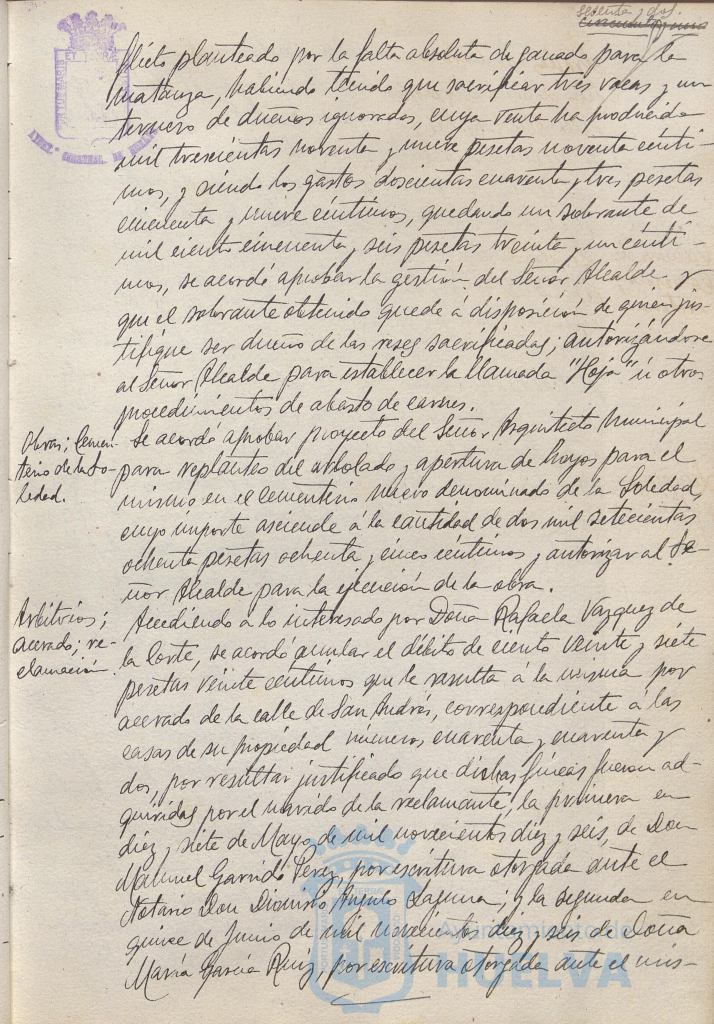 setenta y dos.
cincuenta y uno
flicto planteado por la falta absoluta de ganado para la
matanza, habiendo tenido que sacrificar tres vacas y un
ternero de dueños ignorados, cuya venta ha producido
mil trescientas noventa y nueve pesetas noventa cénti-
mos, y siendo los gastos doscientas cuarenta y tres pesetas
cincuenta y nueve céntimos, quedando un sobrante de
mil ciento cincuenta y seis pesetas treinta y un cénti-
mos, se acordó aprobar la gestión del Señor Alcalde y
que el sobrante obtenido quede á disposición de quien jus-
tifique ser dueño de las reses sacrificadas; autorizándose
al Señor Alcalde para establecer la llamada "Hoja" ú otros
procedimientos de abasto de carnes.
Obras; Cemen-
terio de la So-
ledad.
Se acordó aprobar proyecto del Señor Arquitecto Municipal
para replantes del arbolado y apertura de hoyos para el
mismo en el cementerio nuevo denominado de la Soledad,
cuyo importe asciende á la cantidad de dos mil setecientas
ochenta pesetas ochenta y cinco céntimos y autorizar al Se-
ñor Alcalde para la ejecución de la obra.
Arbitrios;
acerado; re-
clamación
Accediendo a lo interesado por Doña Rafaela Vazquez de
la Corte, se acordó anular el débito de ciento veinte y siete
pesetas veinte centimos que le resulta á la misma por
acerado de la calle de San Andrés, correspondiente á las
casas de su propiedad números cuarenta y cuarenta y
dos, por resultar justificado que dichas fincas fueron ad-
quiridas por el marido de la reclamante, la primera en
diez y siete de Mayo de mil novecientos diez y seis, de Don
Manuel Garrido Perez, por escritura otorgada ante el
Notario Don Dionisio Angulo Laguna; y la segunda en
quince de Junio de mil novecientos diez y seis de Doña
María García Ruiz, por escritura otorgada ante el mis-
Ayuntamiento de
HUELVA